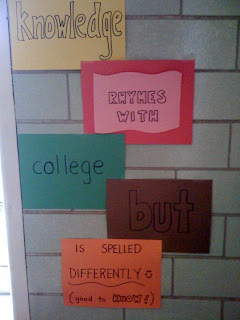 knowledge
RHYMES
WITH
college
but
IS SPELLED
DIFFERENTLY
(good to KNOW!)